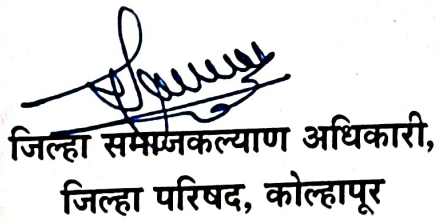 जिल्हा समाजकल्याण अधिकारी,
जिल्हा परिषद, कोल्हापूर